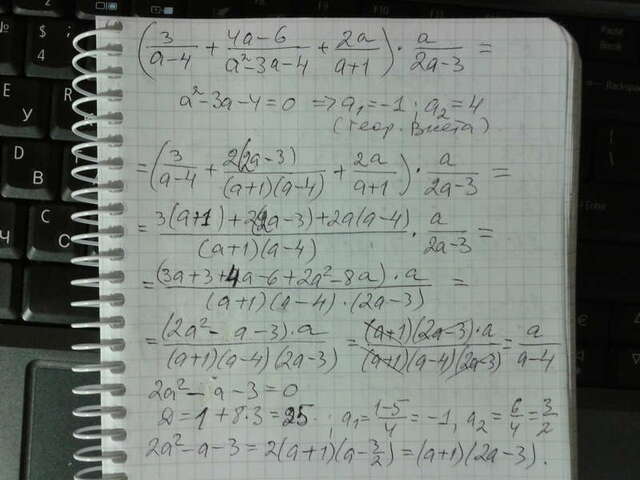 (3/(a-4) + (4a-6)/(a²-3a-4) + 2a/(a+1)) · a/(2a-3) =
a²-3a-4=0 => a₁=-1; a₂=4
(теор. Виета)
= (3/(a-4) + 2(2a-3)/((a+1)(a-4)) + 2a/(a+1)) · a/(2a-3) =
= (3(a+1)+2(2a-3)+2a(a-4))/((a+1)(a-4)) · a/(2a-3) =
= ((3a+3+4a-6+2a²-8a)·a)/((a+1)(a-4)·(2a-3)) =
= ((2a²-a-3)·a)/((a+1)(a-4)(2a-3)) = ((a+1)(2a-3)·a)/((a+1)(a-4)(2a-3)) = a/(a-4)
2a²-a-3=0
D=1+8·3=25; a₁=(1-5)/4=-1, a₂=6/4=3/2
2a²-a-3=2(a+1)(a-3/2)=(a+1)(2a-3).